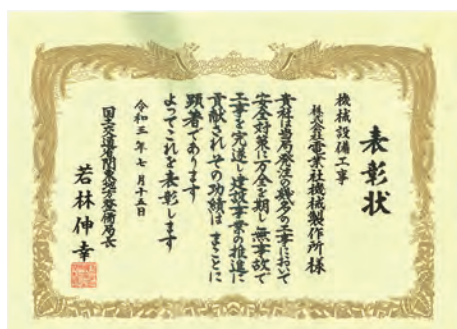 表彰状
機械設備工事
株式会社電業社機械製作所様
貴社は当局発注の職名の工事において
安全対策に万全を期し無事故で
工事を完遂し建設事業の推進に
貢献されその功績はまことに
顕著であります
よってこれを表彰します
令和三年七月十五日
国土交通省関東地方整備局長
若林伸幸